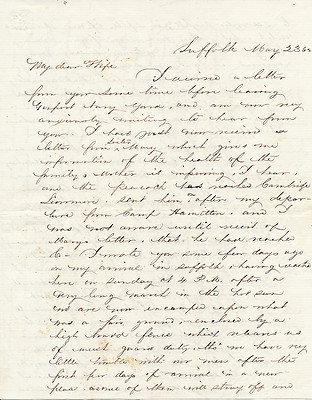 Suffolk May 23 62
My dear Wife
I received a letter
from you some time before leaving
Navy Yard, and am now very
anxiously waiting to hear from
you. I had just now received a
letter from Sister Mary which gives me
information of the health of the
family, Mother is improving, I hear,
and the had reached Cambridge
sent him after my depar-
ture from Camp Hamilton, and I
was not aware until receipt of
Mary's letter, that he had reached
C— I wrote you some few days ago
on my arrival in Suffolk, having reached
here on Sunday at 4 P.M. after a
very long march in the hot sun
and are now encamped upon what
was a fair ground, enclosed by a
high board fence which relieves us
of much guard duty, tho' we have very
little trouble with our men after the
first few days of arrival in a new
place as some of them will stray off and